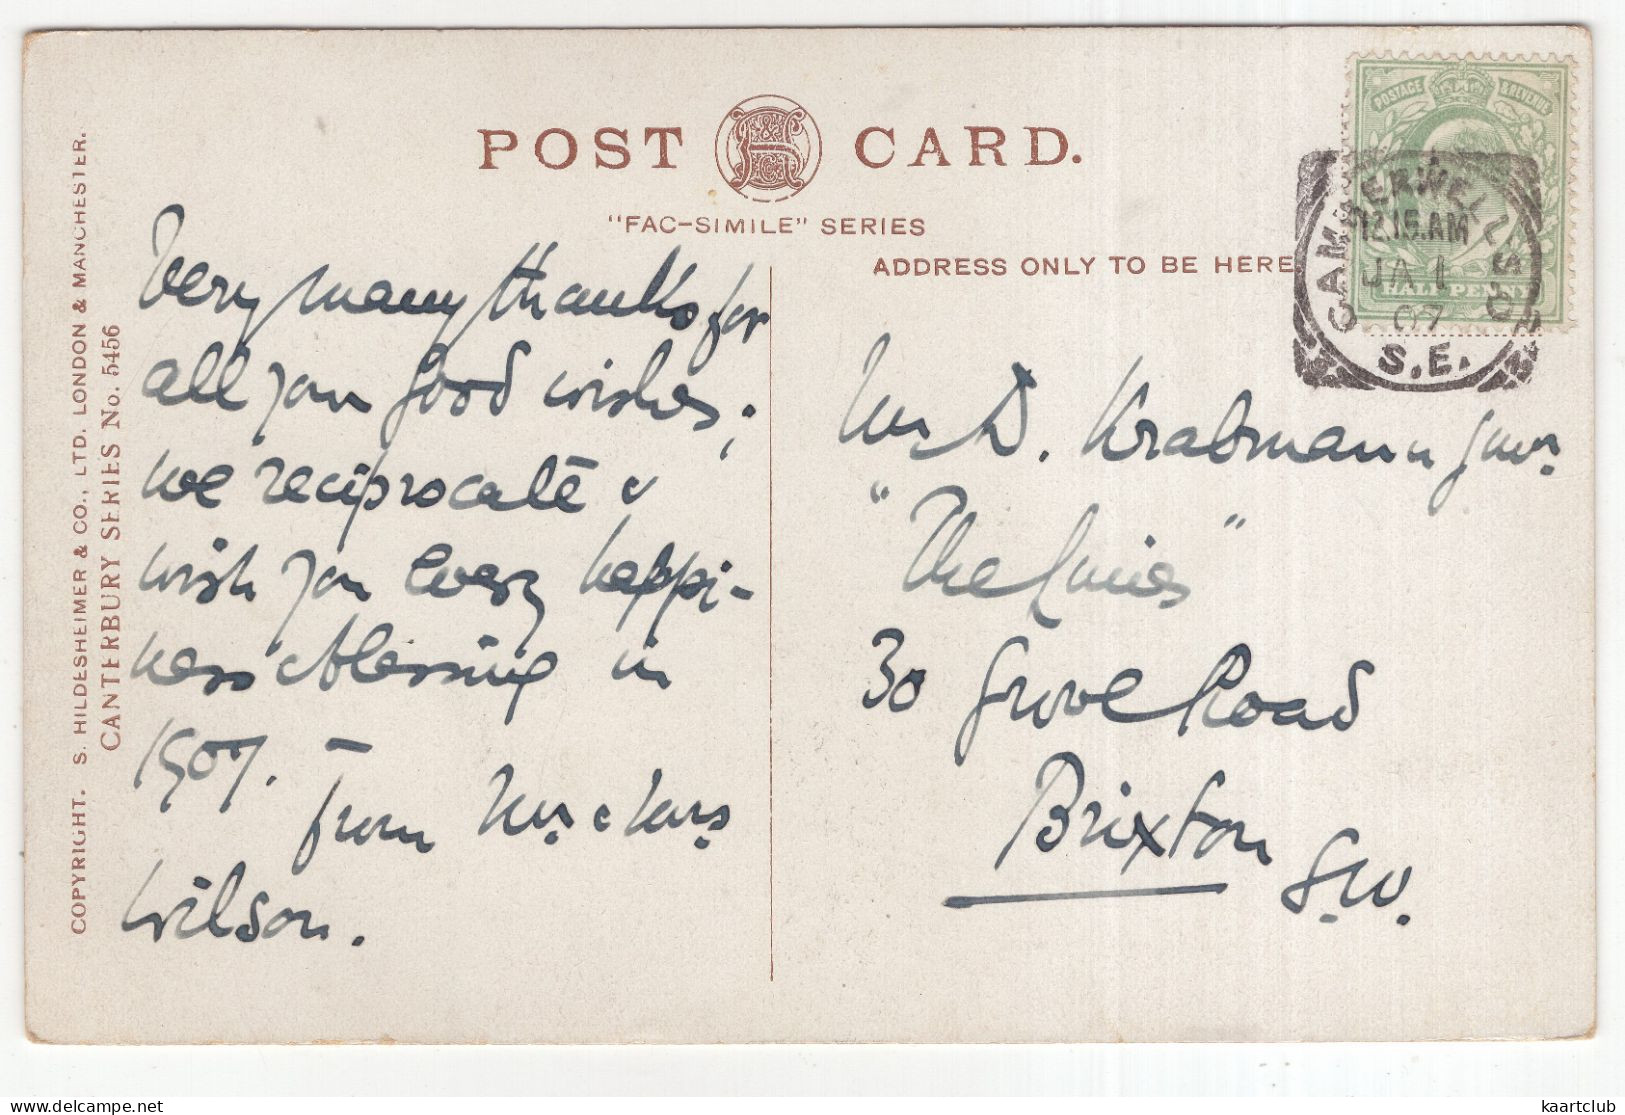 POST CARD.
"FAC-SIMILE" SERIES
ADDRESS ONLY TO BE HERE
COPYRIGHT. S. HILDESHEIMER & CO., LTD. LONDON & MANCHESTER.
CANTERBURY SERIES No. 5456
POSTAGE & REVENUE
HALF PENNY
CAMBERWELL S.O
12.15.AM
JA 1
07
S.E.
Very many thanks for
all your good wishes;
we reciprocate &
wish you every happi-
ness & blessing in
1907. — From Mr. & Mrs
Wilson.
Mr D. Krabmann Junr.
"The
30 Grove Road
Brixton
S.W.
kaartclub